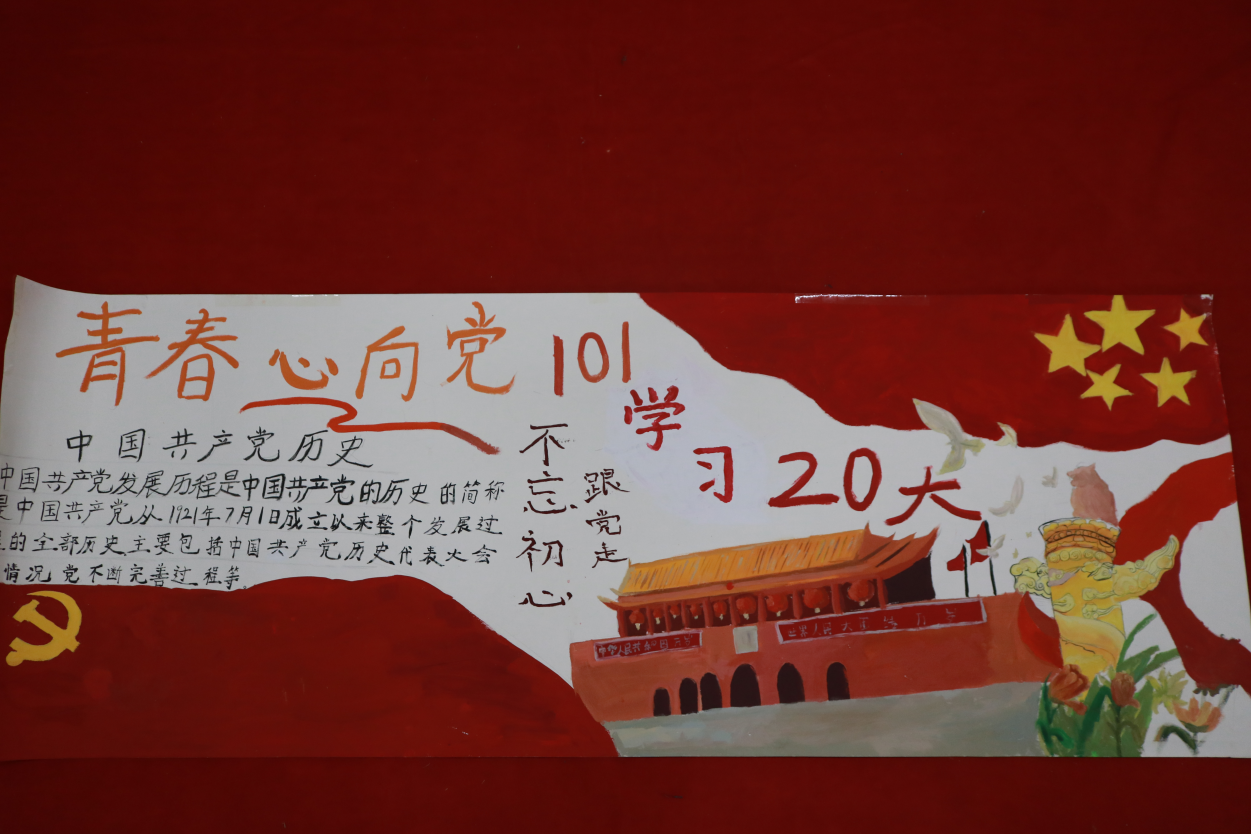 青春心向党101
中国共产党历史
中国共产党发展历程是中国共产党的历史的简称
是中国共产党从1921年7月1日成立以来整个发展过
的全部历史主要包括中国共产党历史代表大会
情况党不断完善过程等
不忘初心
跟党走
学习20大
中华人民共和国万岁
世界人民大团结万岁